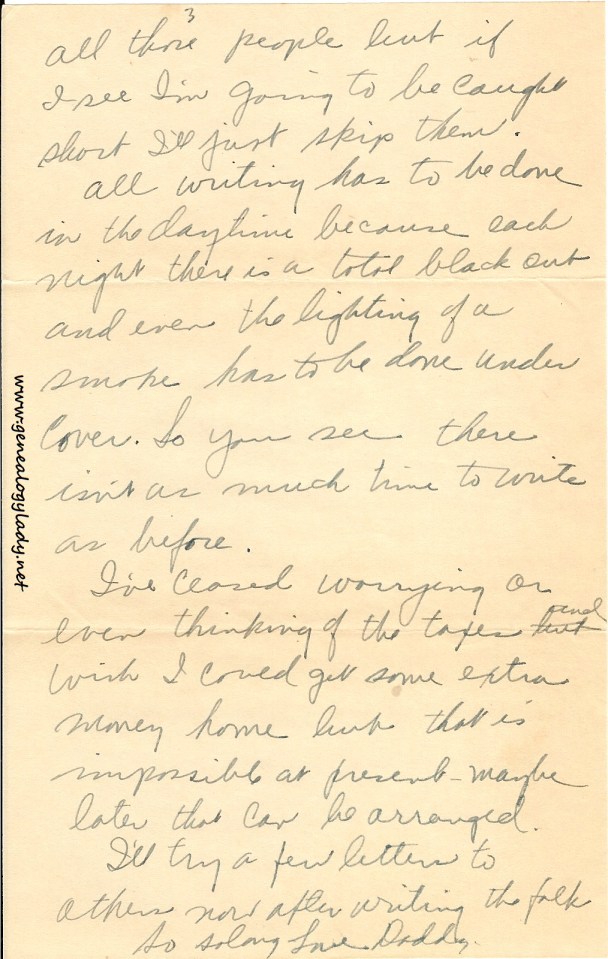 3
all those people but if
I see I'm going to be caught
short I'll just skip them.
all writing has to be done
in the daytime because each
night there is a total black out
and even the lighting of a
smoke has to be done under
cover. So you see there
isn't as much time to write
as before.
I've ceased worrying or
even thinking of the taxes but and
wish I could get some extra
money home but that is
impossible at present - maybe
later that can be arranged.
I'll try a few letters to
others now after writing the folk
So solong Love Daddy.
www.genealogylady.net